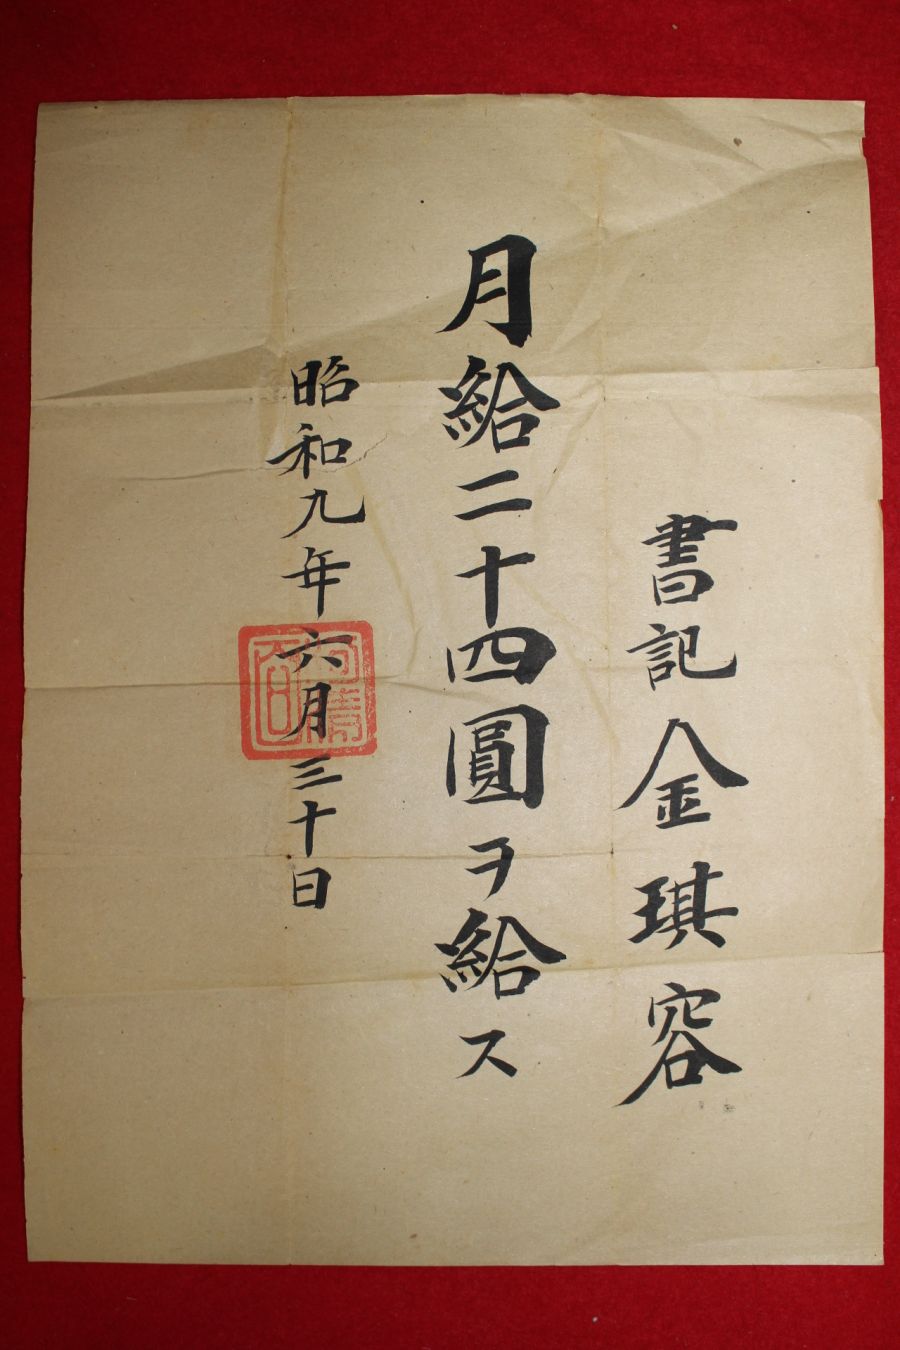 書記金琪容
月給二十四圓ヲ給ス
昭和九年六月三十日